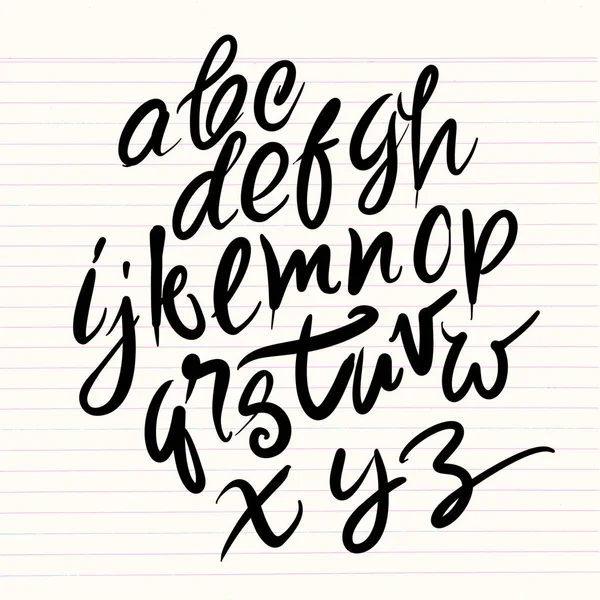 abc
defgh
ijklmnop
qrstuvw
xyz